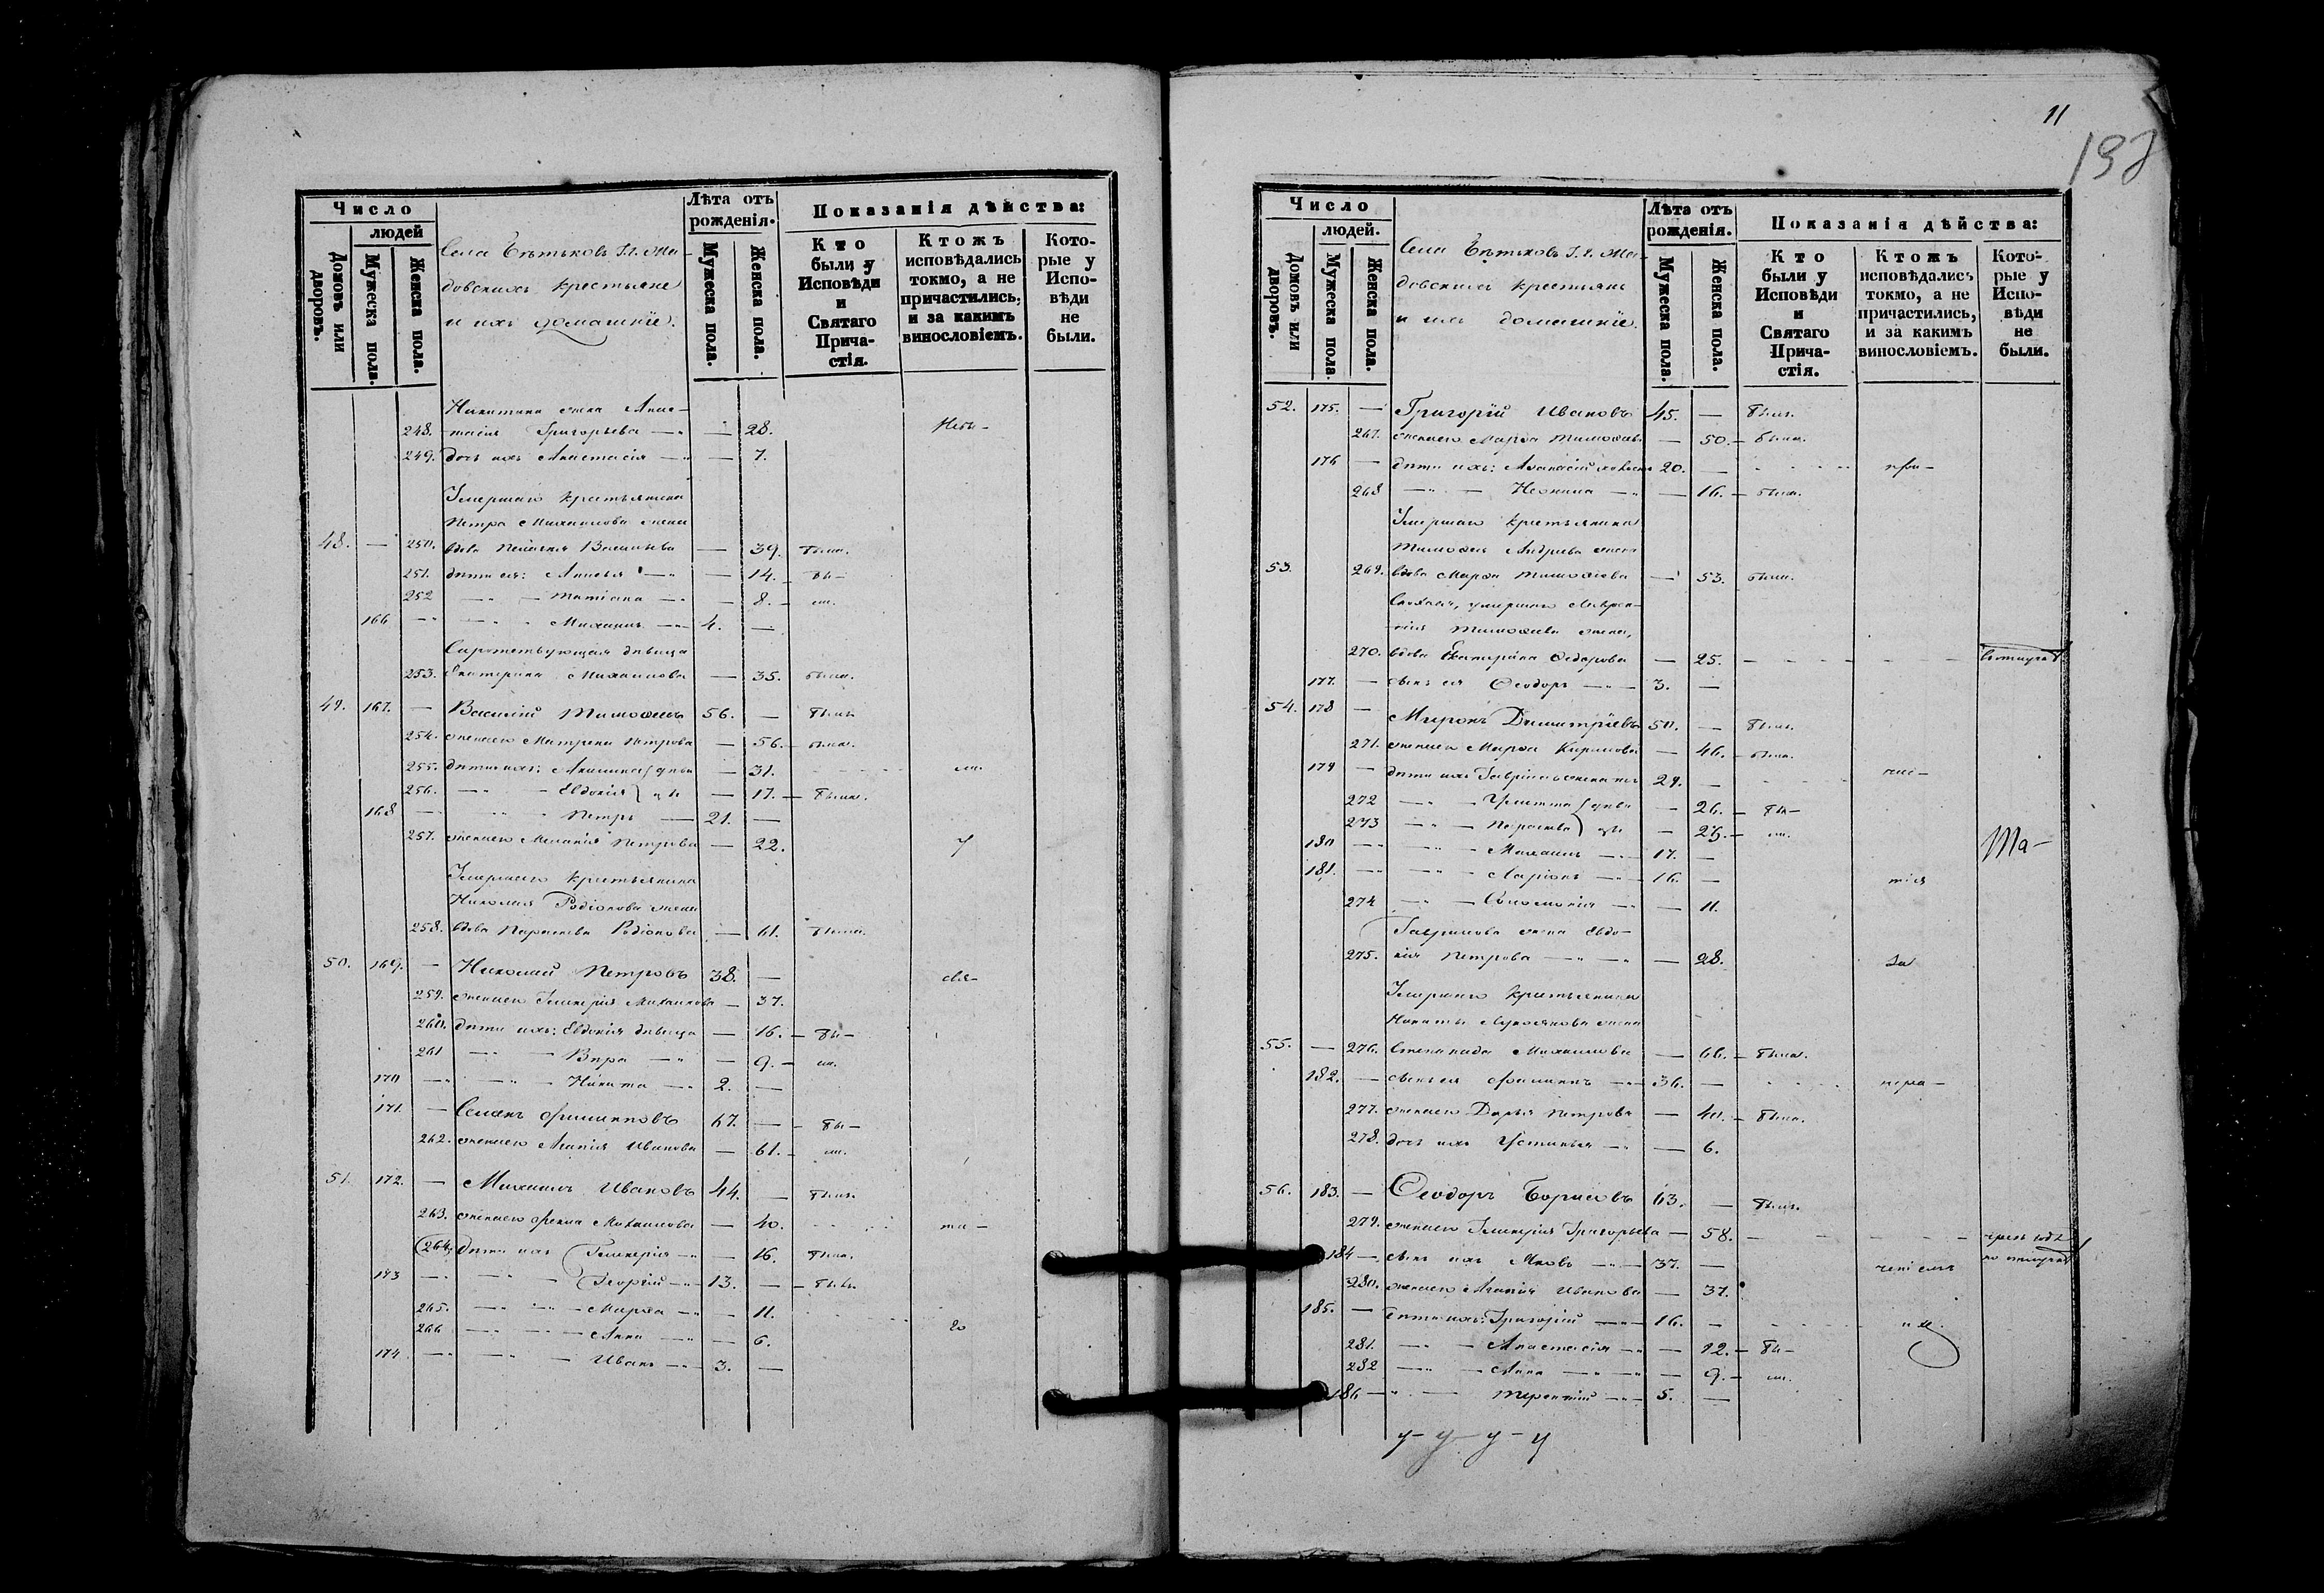 Число
людей
Домовъ или дворовъ.
Мужеска пола.
Женска пола.
Лѣта отъ рожденія.
Мужеска пола.
Женска пола.
Показанія дѣйства:
Кто были у Исповѣди и Святаго Прича-стія.
Ктожъ исповѣдались токмо, а не причастились, и за какимъ винословіемъ.
Кото-рые у Испо-вѣди не были.
крестьяне
и ихъ домашніе.
Никитина жена Анас-
248. тасія Григорьева — 28.
249. дочь ихъ Анастасія — 7.
Умершаго крестьянина
Петра Михаилова жена
48. — 250. вдова Пелагея Васильева — 39. была.
251. дѣти ея: Анисья — 14. бы-
252 Татіана — 8. ли.
166 Михаилъ 4. —
Сиротствующая дѣвица
253. Екатерина Михаилова — 35. была.
49. 167. — Василій Тимофеевъ 56. — былъ
254. жена его Матрена Петрова — 56. была.
255. дѣти ихъ: Акилина — 31.
256. Евдокія — 17. была.
168 Петръ 21. —
257. жена его Меланія Петрова — 22.
Умершаго крестьянина
Николая Родіонова жена
258. вдова Параскева Родіонова — 61. была.
50. 169. — Николай Петровъ 38. —
259. жена его Гликерія Михаилова — 37.
260. дѣти ихъ: Евдокія дѣвица — 16. бы-
261 Вѣра — 9. ли.
170 Никита 2. —
171. — Семенъ Филипповъ 67. — бы-
262. жена его Агапія Иванова — 61. ли.
51. 172. — Михаилъ Ивановъ 44. — былъ.
263. жена его Фекла Михаилова — 40.
264. дѣти ихъ Гликерія — 16. была.
173 Георгій 13. — былъ.
265. Марфа — 11.
266 Анна — 6.
174 Иванъ 3. —
11
Число
людей.
Домовъ или дворовъ.
Мужеска пола.
Женска пола.
Лѣта отъ рожденія.
Мужеска пола.
Женска пола.
Показанія дѣйства:
Кто были у Исповѣди и Святаго Прича-стія.
Ктожъ исповѣдались токмо, а не причастились, и за какимъ винословіемъ.
Кото-рые у Испо-вѣди не были.
крестьянъ
и ихъ домашніе.
52. 175. — Григорій Ивановъ 45. — былъ.
267. жена его Марфа Тимофеева — 50. была.
176 — дѣти ихъ: Афанасій 20. —
268 Неонила — 16. была.
Умершаго крестьянина
Тимофея Андреева жена
53. 269. вдова Марфа Тимофеева — 53. была.
Сноха ея, умершаго Лаврен-
тія Тимофеева жена,
270. вдова Екатерина Федорова — 25.
177. — сынъ ея Феодоръ 3. —
54. 178 — Миронъ Димитріевъ 50. — былъ.
271. жена его Марфа Кирилова — 46. была.
179 — дѣти ихъ Гавріилъ 29. —
272 — 26. бы-
273 Параскева — 23. ли.
180 Михаилъ 17. —
181. Ларіонъ 16. —
274 Соломонія — 11.
Гаврилова жена Евдо-
275. кія Петрова — 28.
Умершаго крестьянина
Никиты жена
55. — 276. Степанида Михаилова — 66. была.
182. — сынъ ея Филиппъ 36. —
277. жена его Дарья Петрова — 40. была.
278. дочь ихъ Устинья — 6.
56. 183. — Феодоръ Борисовъ 63. — былъ.
279. жена его Гликерія Григорьева — 58.
184 — сынъ ихъ Яковъ 37. —
280. жена его Агапія Иванова — 37.
185. — дѣти ихъ: Григорій 16. —
281. Анастасія — 12. бы-
282 Анна — 9. ли.
186 Терентій 5. —